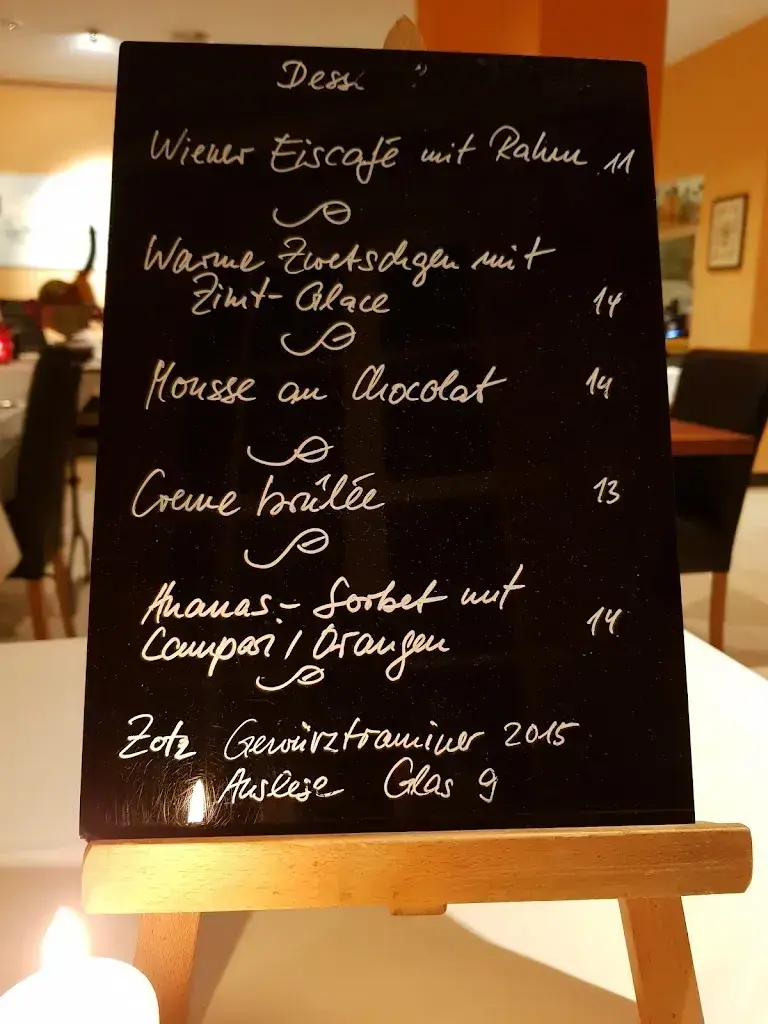 Wiener Eiscafé mit Rahm 11
Warme Zwetschgen mit
Zimt-Glace 14
Mousse au Chocolat 14
Creme brûlée 13
Ananas-Sorbet mit
Campari / Orangen 14
Zotz Gewürztraminer 2015
Auslese Glas 9